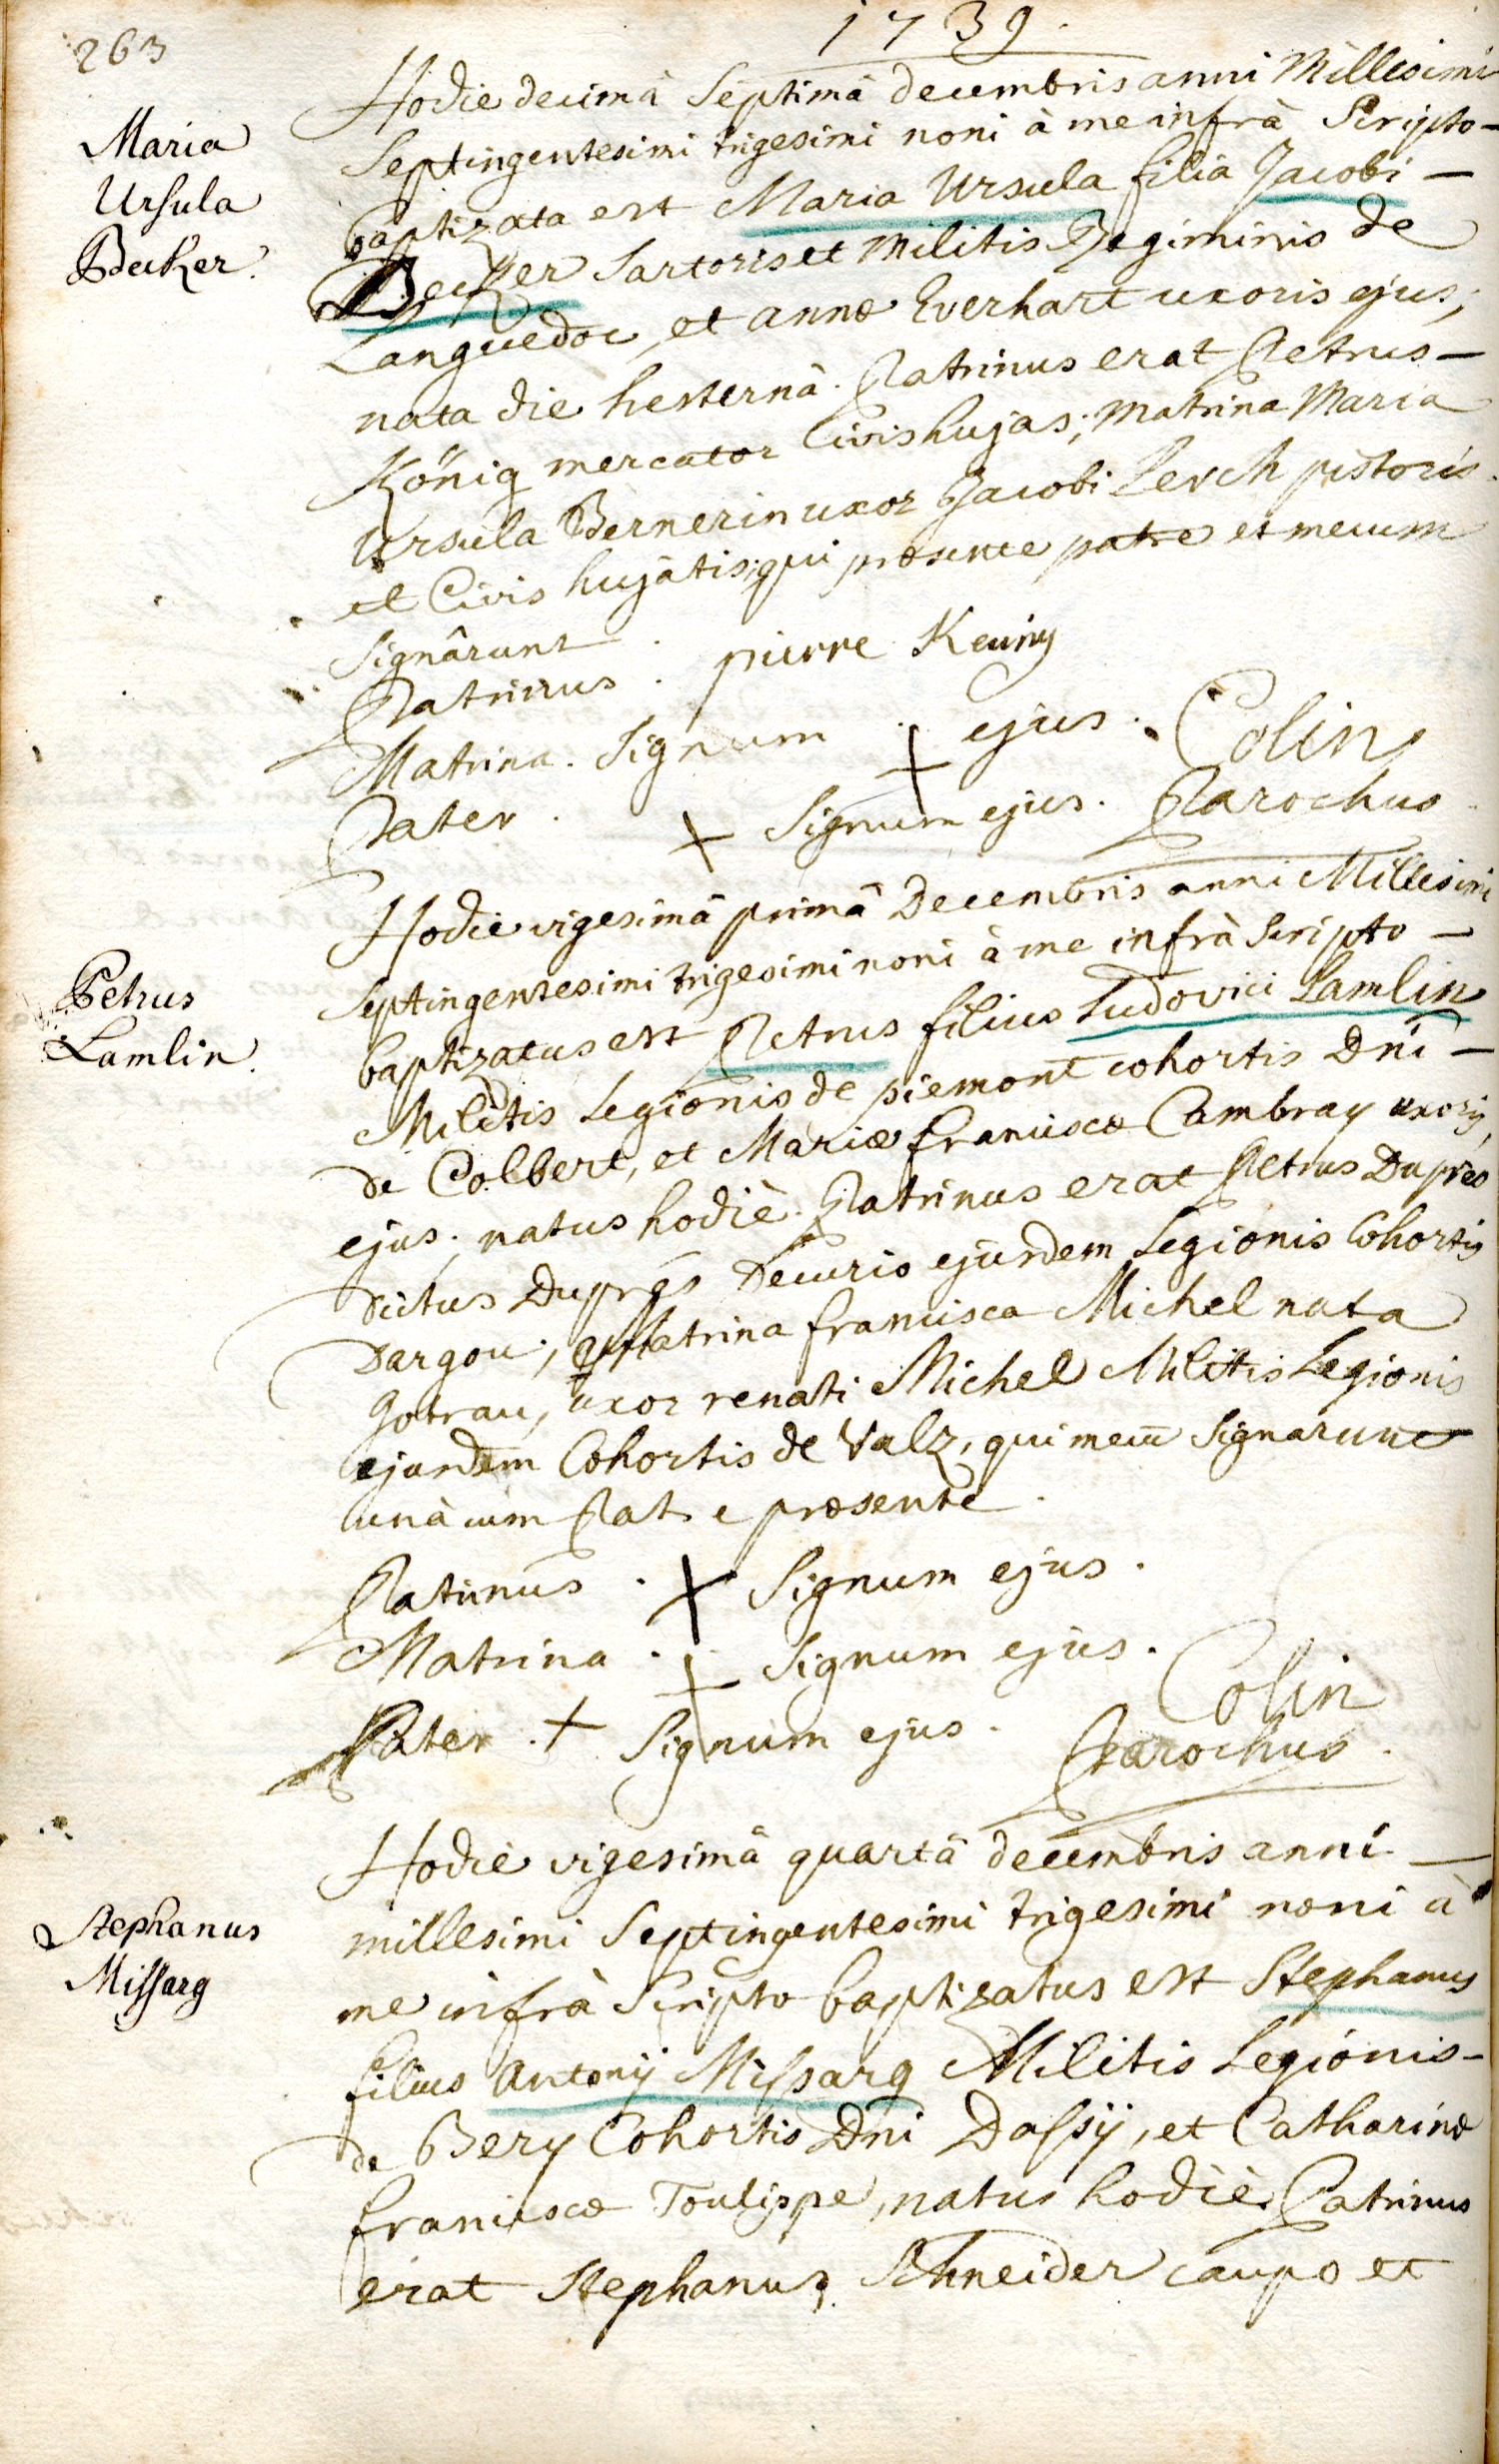 263
1739.
Maria
Ursula
Becker.
Hodie decimâ Septimâ decembris anni Millesimi
Septingentesimi trigesimi noni à me infrà Scripto –
baptizata est Maria Ursula filia Jacobi –
Becker Sartoris et Militis Regiminis de
Languedoc, et annæ Everhart uxoris ejus;
nata die hesternâ. Patrinus erat Petrus –
König mercator Civis hujas; Matrina Maria
Ursula Bernerin uxor Jacobi Lerch pistoris
et Civis hujatis; qui præsente patre et mecum
Signârunt
Patrinus. pierre Keuing
Matrina. Signum + ejus. Colin
Pater. + Signum ejus. Parochus
Petrus
Lamlin.
Hodie vigesimâ primâ Decembris anni Millesimi
Septingentesimi trigesimi noni à me infrà Scripto –
baptizatus est Petrus filius Ludovici Lamlin
Militis Legionis de piemont cohortis Dni –
de Colbert, et Mariæ franciscæ Cambray uxoris
ejus; natus hodiè. Patrinus erat Petrus Duprés
dictus Duprés Decurio ejusdem Legionis Cohortis
Dargou; Matrina francisca Michel nata
Gotrau, uxor renati Michel Militis Legionis
ejusdem Cohortis de Valz, qui mecū Signarunt
unà cum Patre præsente.
Patrinus. + Signum ejus.
Matrina. + Signum ejus.
Pater. + Signum ejus. Colin
Parochus.
Stephanus
Missarg
Hodiè vigesimâ quartâ decembris anni –
millesimi Septingentesimi trigesimi noni à
me infrà Scripto baptizatus est Stephanus
filius Antonij Missarg Militis Legionis –
de Bery Cohortis Dni Dassÿ, et Catharinæ
franciscæ Toulippe, natus hodiè. Patrinus
erat Stephanus Schneider caupo et